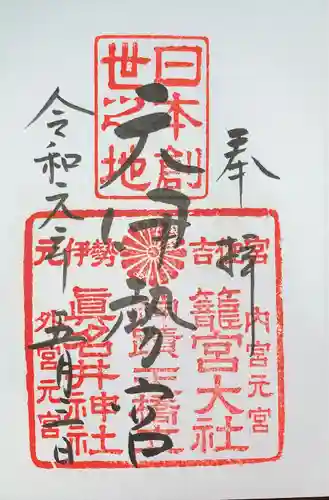 奉拝
日本創
世之地
元伊勢宮
吉宮
伊勢
元
内宮元宮
籠宮大社
眞名井神社
外宮元宮
令和元年
五月三日